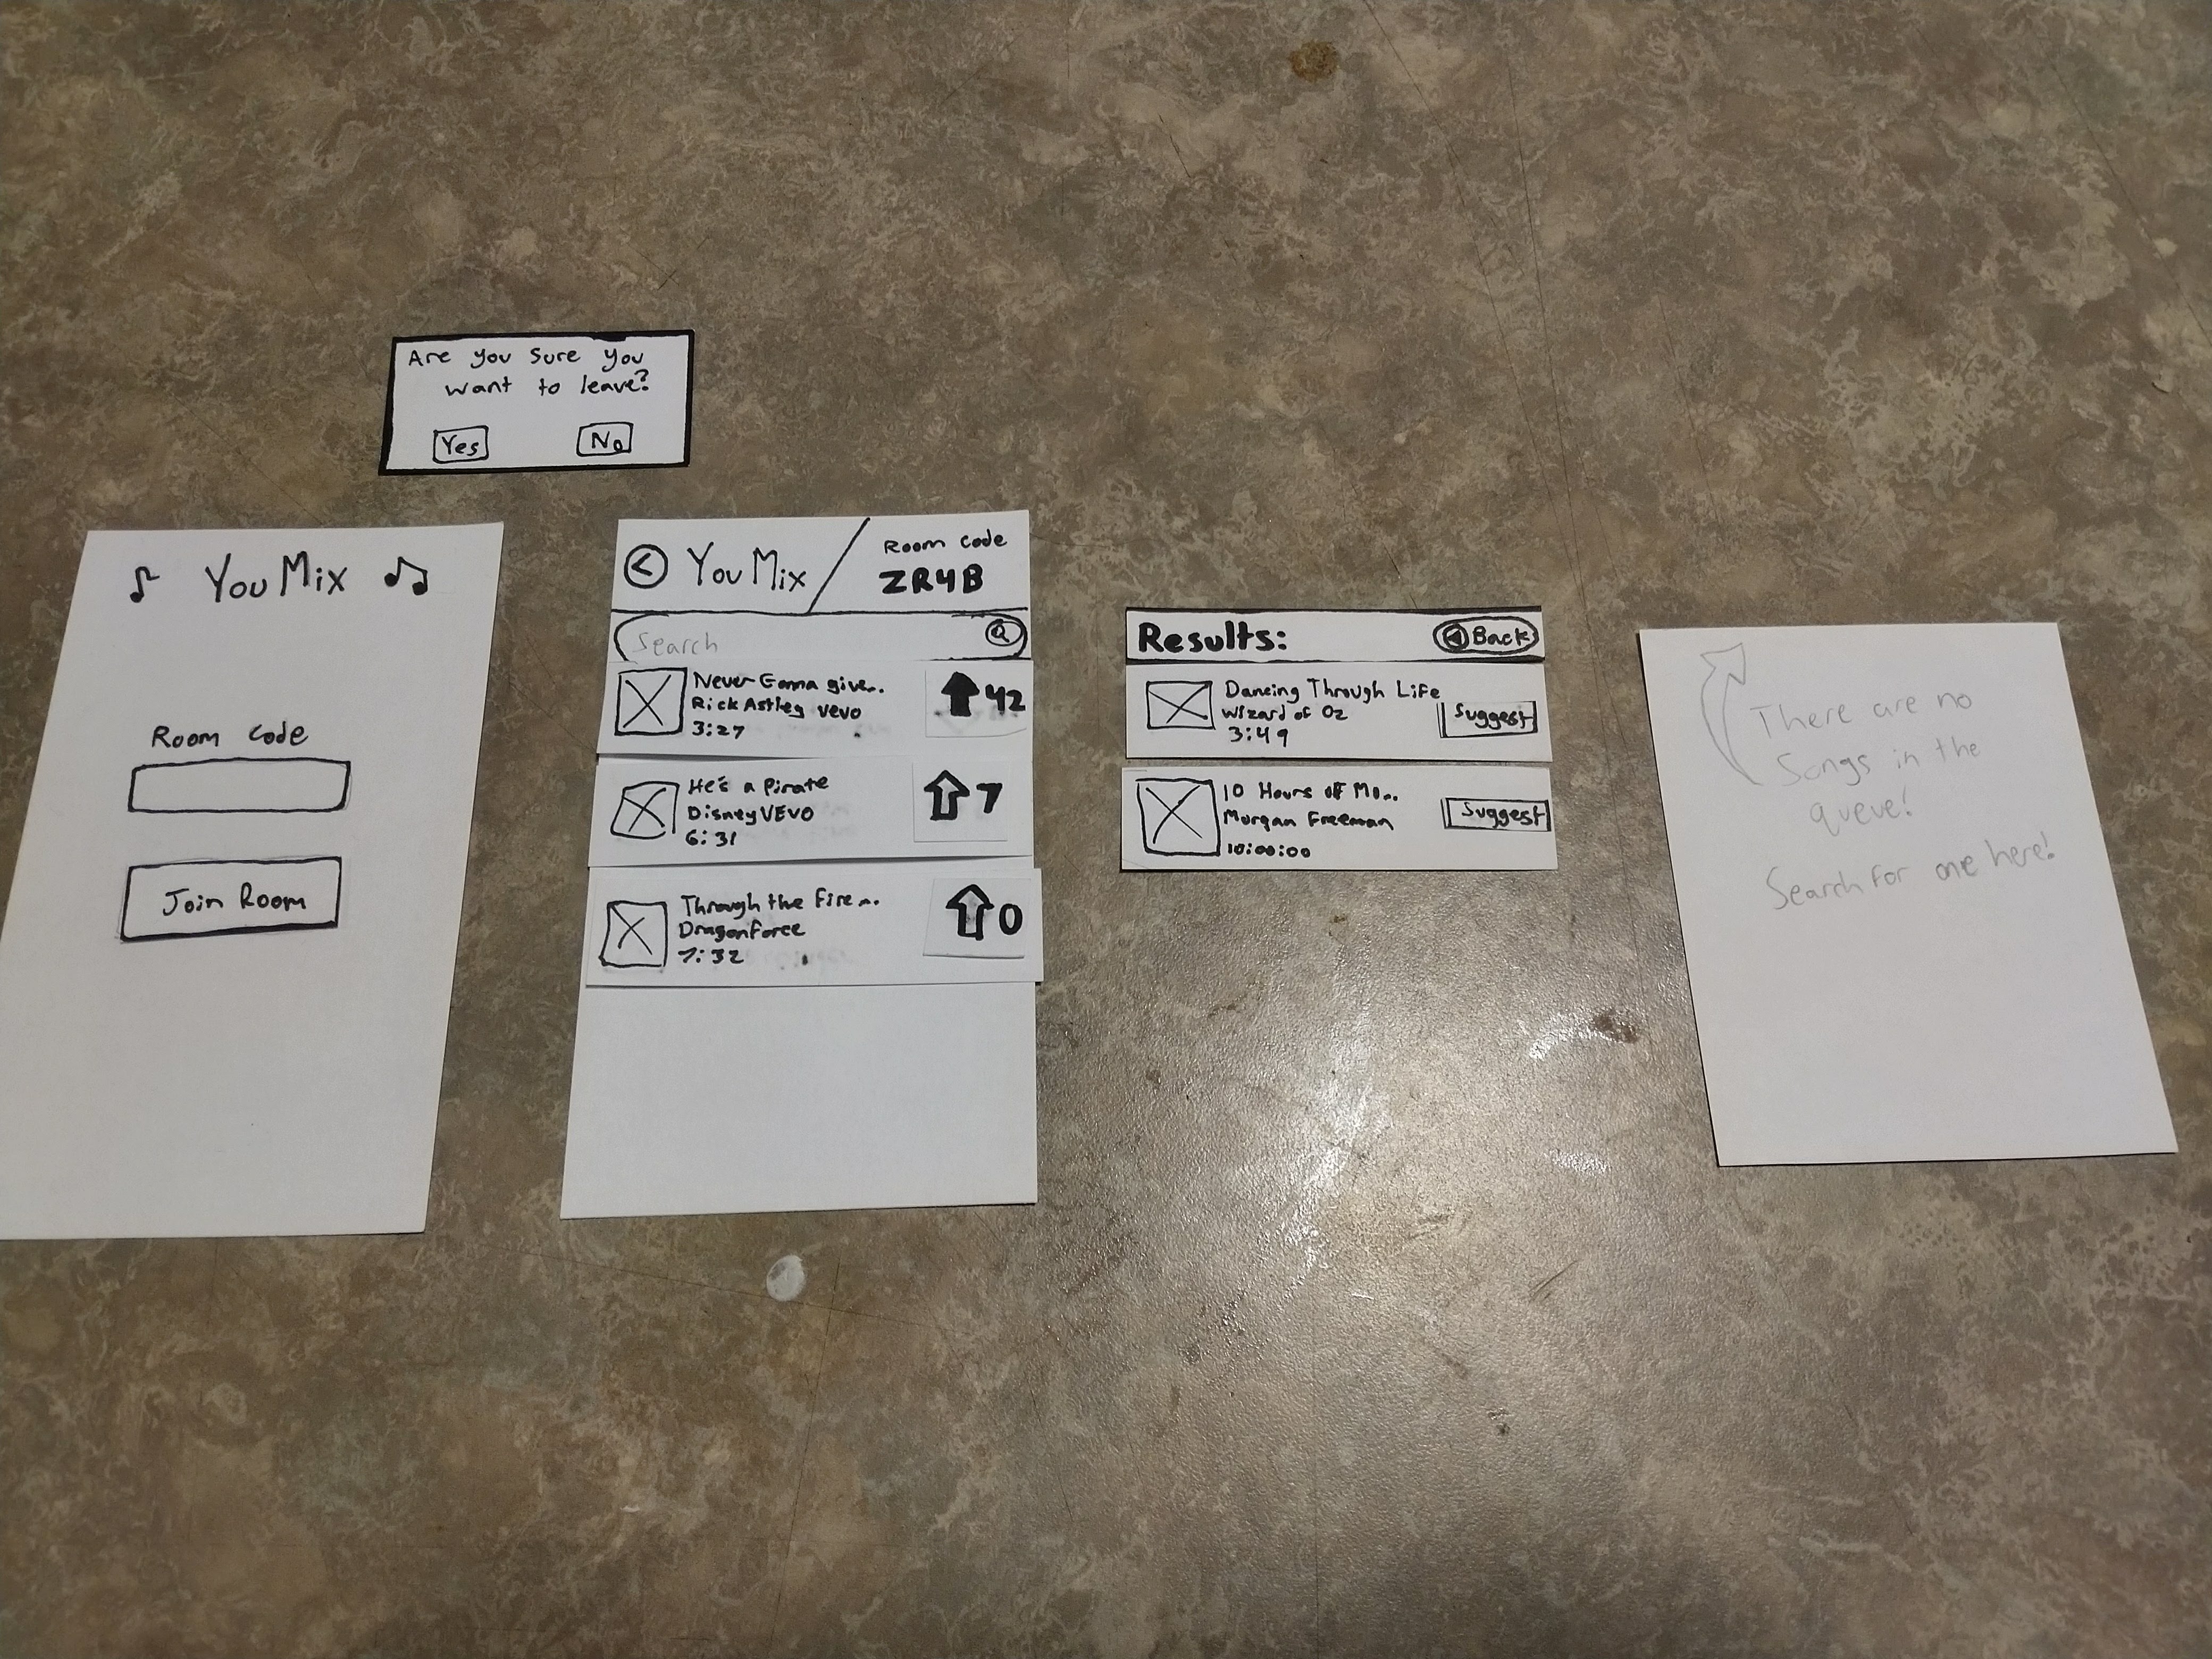 Are you sure you
want to leave?
Yes
No
YouMix
Room Code
Join Room
YouMix
Room Code
ZR4B
Search
Never Gonna give...
Rick Astley vevo
3:27
42
He's a Pirate
DisneyVEVO
6:31
7
Through the Fire...
Dragonforce
7:32
0
Results:
Back
Dancing Through Life
Wizard of Oz
3:49
Suggest
10 Hours of Mo...
Morgan Freeman
10:00:00
Suggest
There are no
Songs in the
queue!
Search for one here!